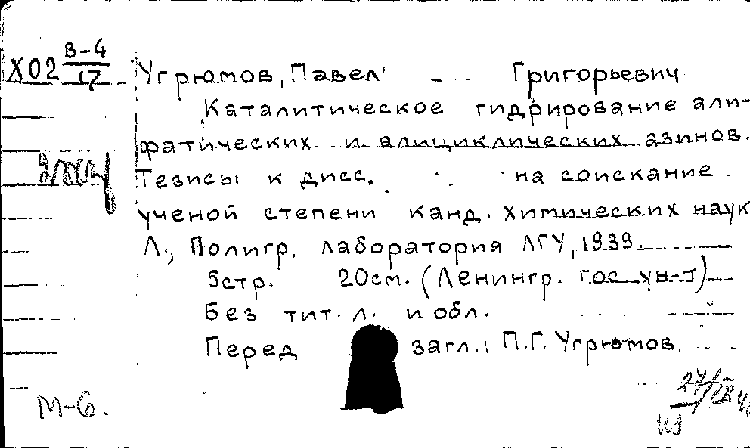 Х02 В-4/17
Угрюмов, Павел Григорьевич
Каталитическое гидрирование али-
фатических и алициклических азинов.
Тезисы к дисс. на соискание
ученой степени канд. химических наук
Л., Полигр. лаборатория ЛГУ, 1939.
5стр. 20см. (Ленингр. гос. ун-т)
Без тит. л. и обл.
Перед загл.: П.Г. Угрюмов.
М-6.